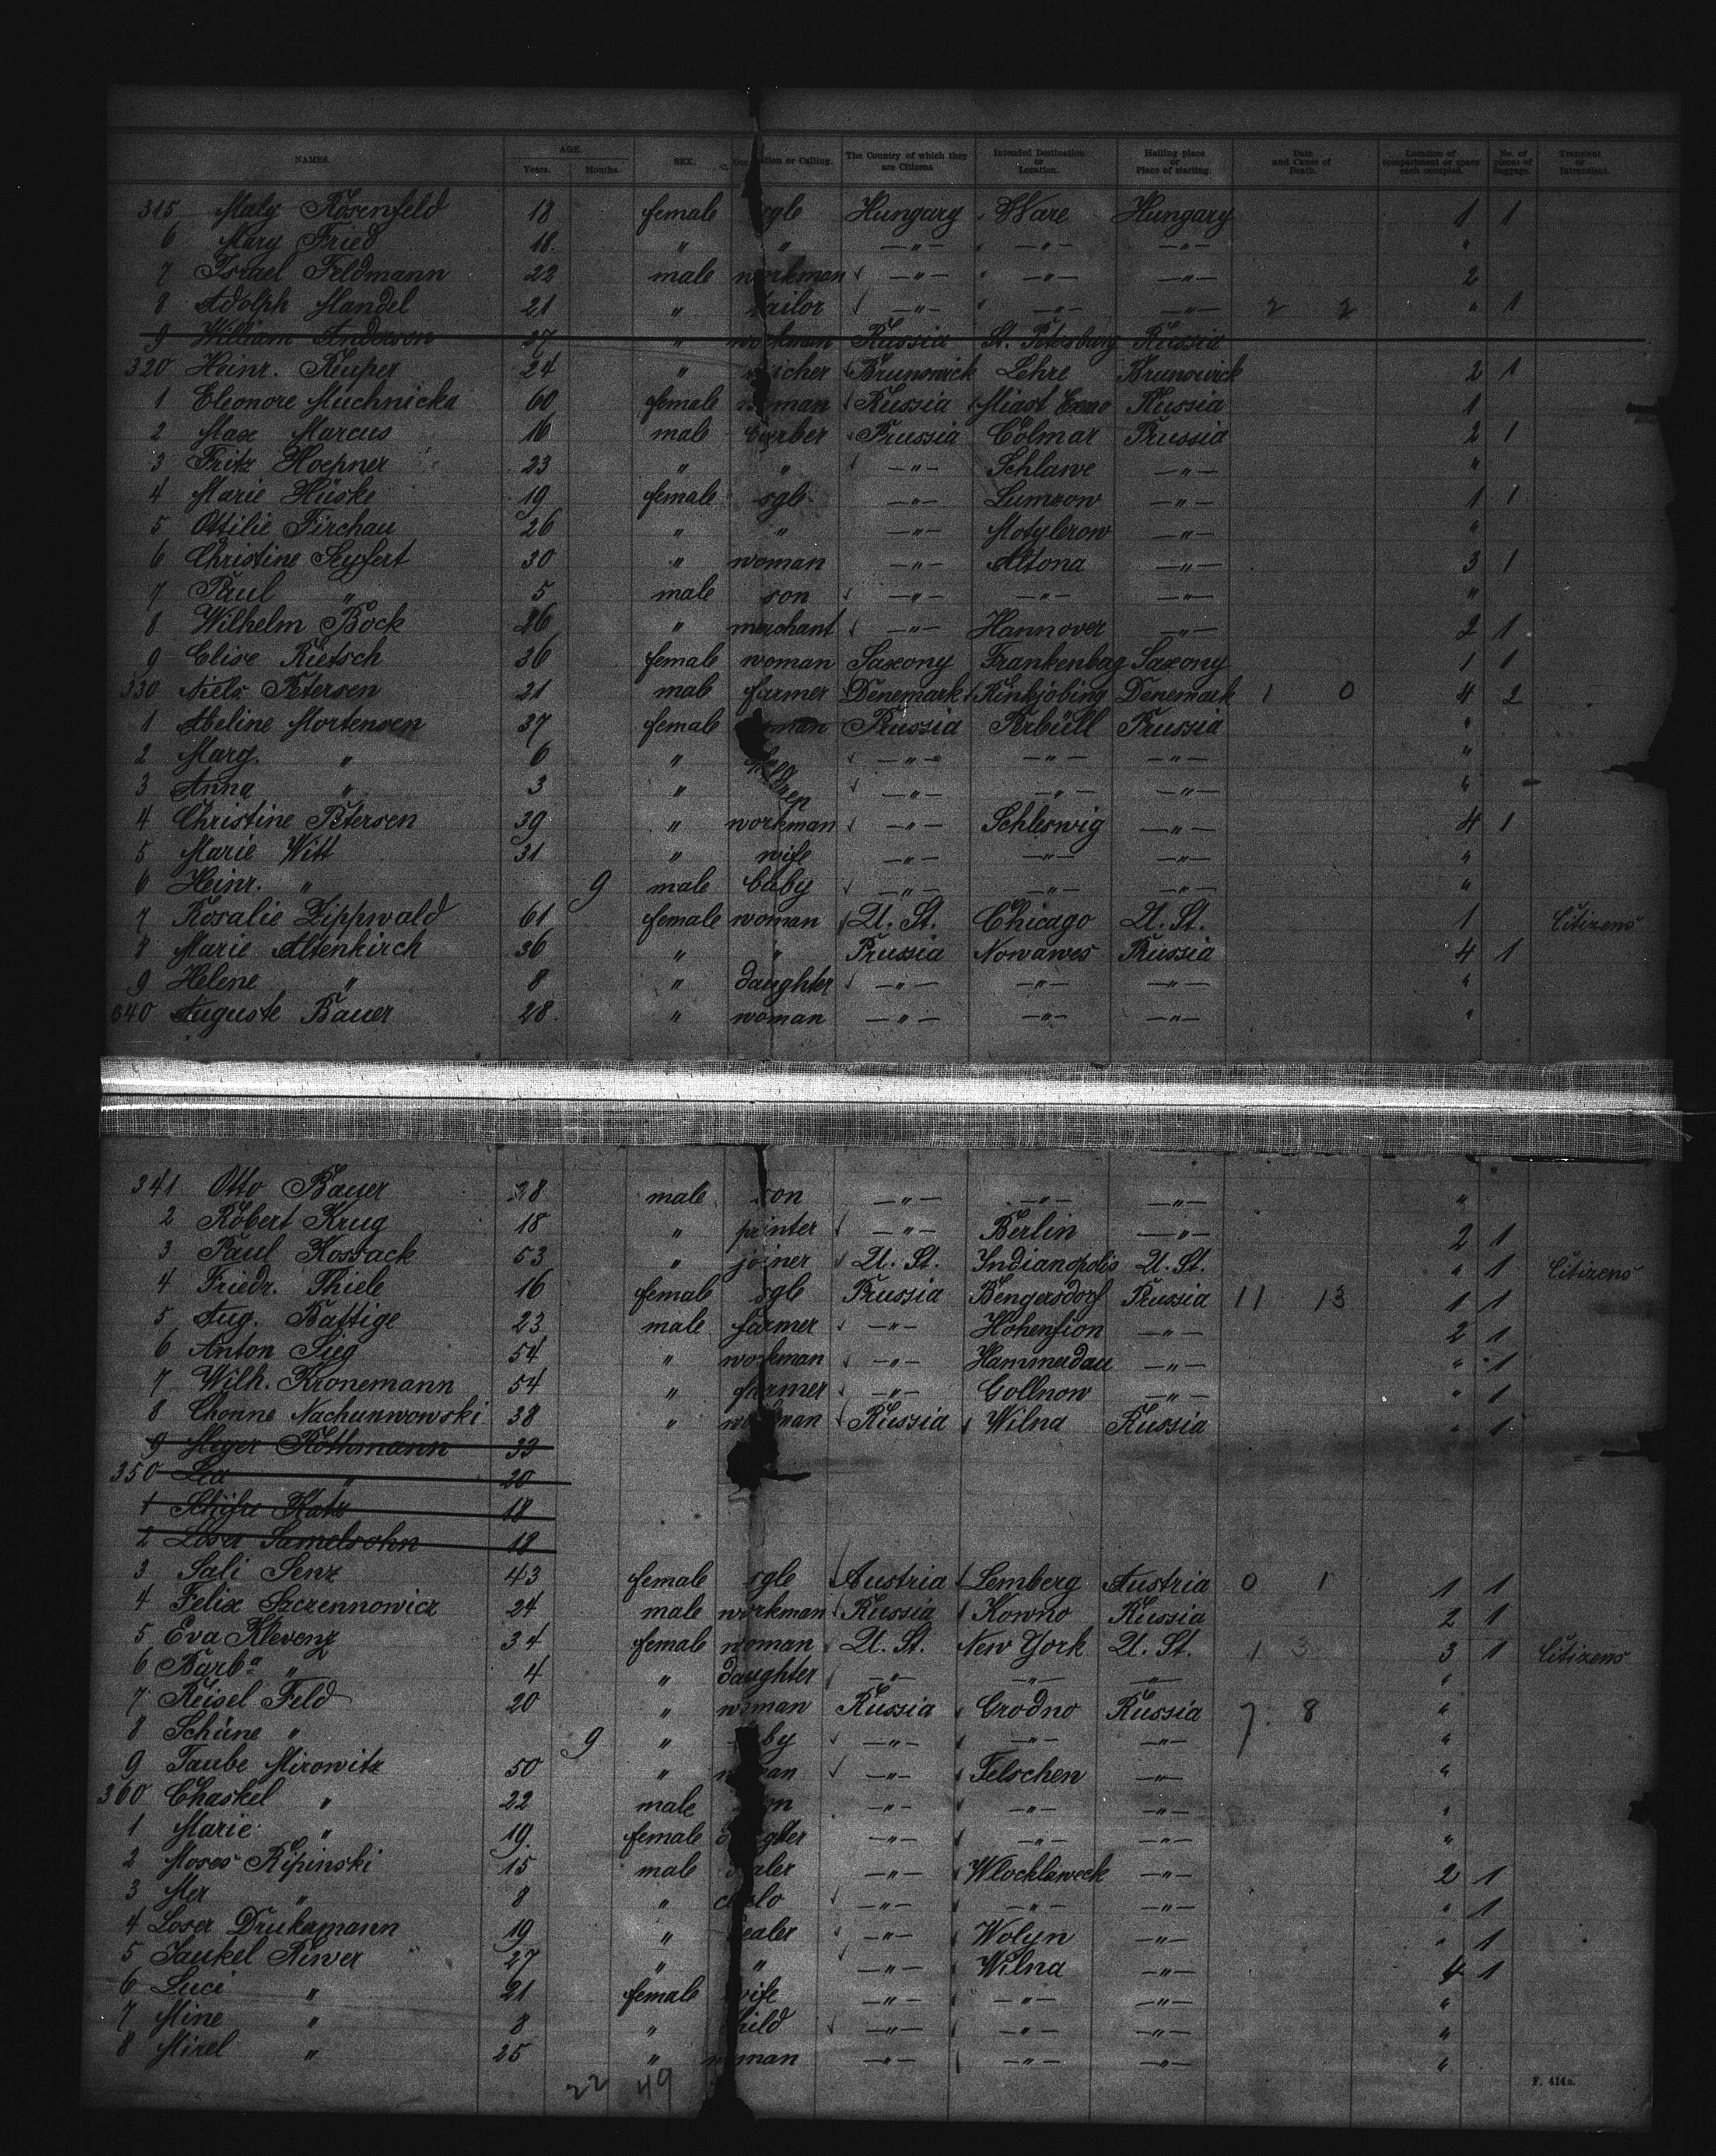 NAMES. AGE. Years. Months. SEX. Occupation or Calling. The Country of which they are Citizens Intended Destination or Location. Hailing place or Place of starting. Date and Cause of Death. Location of compartment or space each occupied. No. of pieces of baggage. Transient or Intransient.
315 Maly Rosenfeld 18 female sgle Hungary Ware Hungary 1 1
6 Mary Fried 18 " " —"— —"— —"— "
7 Israel Feldmann 22 male workman —"— —"— —"— 2
8 Adolph Mandel 21 " tailor —"— —"— —"— 2 2 " 1
9 William Anderson 27 " workman Russia St. Petersburg Russia
320 Heinr. Reuper 24 " Brunswick Lehre Brunswick 2 1
1 Eleonore Muchnicka 60 female woman Russia Miast Russia 1
2 Max Marcus 16 male barber Prussia Colmar Prussia 2 1
3 Fritz Hoepner 23 " " —"— Schlawe —"— "
4 Marie Hüske 19 female sgle —"— Lumzow —"— 1 1
5 Ottilie Firchau 26 " " —"— Motylerow —"— "
6 Christine Seyfert 30 " woman —"— Altona —"— 3 1
7 Paul " 5 male son —"— —"— —"— "
8 Wilhelm Bock 26 " merchant —"— Hannover —"— 2 1
9 Elise Rietsch 36 female woman Saxony Frankenbag Saxony 1 1
330 Niels Petersen 21 male farmer Denemark Rinkjobing Denemark 1 0 4 2
1 Abeline Mortensen 37 female woman Prussia Perbüll Prussia "
2 Marg. " 6 " children —"— —"— —"— "
3 Anna " 3 " —"— —"— —"— "
4 Christine Petersen 39 " workman —"— Schleswig —"— 4 1
5 Marie Witt 31 " wife —"— —"— —"— "
6 Heinr. " 9 male baby —"— —"— —"— "
7 Rosalie Zippwald 61 female woman U. St. Chicago U. St. 1 Citizens
8 Marie Altenkirch 36 " " Prussia Nowawes Prussia 4 1
9 Helene " 8 " daughter —"— —"— —"— "
340 Auguste Bauer 28 " woman —"— —"— —"— "
341 Otto Bauer male son —"— —"— —"— "
2 Robert Krug 18 " printer —"— Berlin —"— 2 1
3 Paul Kossack 53 " joiner U. St. Indianopolis U. St. " 1 Citizens
4 Friedr. Thiele 16 female sgle Prussia Bengersdorf Prussia 11 13 1 1
5 Aug. Battige 23 male farmer —"— Hohenfion —"— 2 1
6 Anton Sieg 54 " workman —"— Hammerdau —"— " 1
7 Wilh. Kronemann 54 " farmer —"— Gollnow —"— " 1
8 Chonne Nachunwowski 38 " workman Russia Wilna Russia " 1
9 Meyer Rothmann 33
350 Lea " 20
1 Schifre Katz 18
2 Loser Samelsohn 18
3 Sali Senz 43 female sgle Austria Lemberg Austria 0 1 1 1
4 Felix Szczennowicz 24 male workman Russia Kowno Russia 2 1
5 Eva Klevenz 34 female woman U. St. New York U. St. 1 3 3 1 Citizens
6 Barba " 4 " daughter —"— —"— —"— "
7 Reisel Feld 20 " woman Russia Grodno Russia 7. 8 "
8 Schüne " 9 " baby —"— —"— —"— "
9 Taube Mirowitz 50 " woman —"— Telschen —"— "
360 Chaskel " 22 male son —"— —"— —"— "
1 Marie " 19 female daughter —"— —"— —"— "
2 Moses Ripinski 15 male dealer —"— Wlocklaweck —"— 2 1
3 Mer " 8 " —"— —"— —"— " 1
4 Loser Drukermann 19 " dealer —"— Wolyn —"— " 1
5 Jankel Riwer 27 " " —"— Wilna —"— 4 1
6 Luci " 21 female wife —"— —"— —"— "
7 Mine " 8 " child —"— —"— —"— "
8 Mirel " 25 " woman —"— —"— —"— "
22 49
F. 414a.